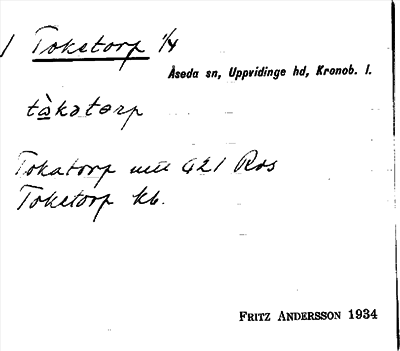 1 Toketorp 1/4
Åseda sn, Uppvidinge hd, Kronob. l.
tàkətorp
Tokatorp 421 Ros
Toketorp kb.
FRITZ ANDERSSON 1934